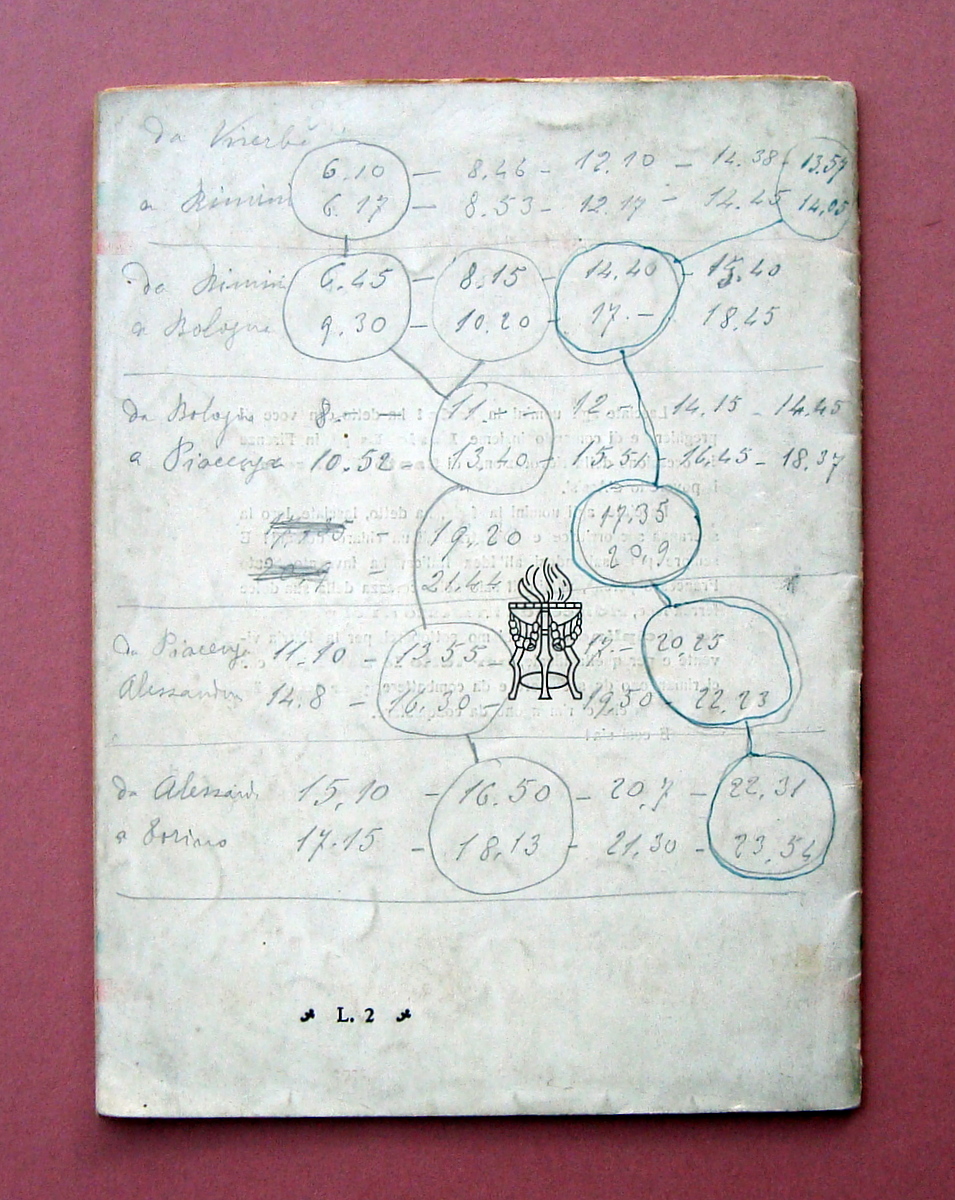 da Viserba 6.10 – 8.46 – 12.10 – 14.38 – 13.57
a Rimini 6.17 – 8.53 – 12.17 – 14.45 14.05
da Rimini 6.45 – 8.15 – 14.40 – 15.40
a Bologna 9.30 – 10.20 – 17.– 18.45
da Bologna 8.– – 11. – 12 – 14.15 – 14.45
a Piacenza 10.52 – 13.40 – 15.5 – 16.45 – 18.37
19.20 17.35
– 21.44 20.9
da Piacenza 11.10 – 13.55 17.– – 20.25
Alessandria 14.8 – 16.30 – 19.50 – 22.23
da Alessand. 15.10 – 16.50 – 20.7 – 22.31
a Torino 17.15 – 18.13 – 21.30 – 23.54
L. 2